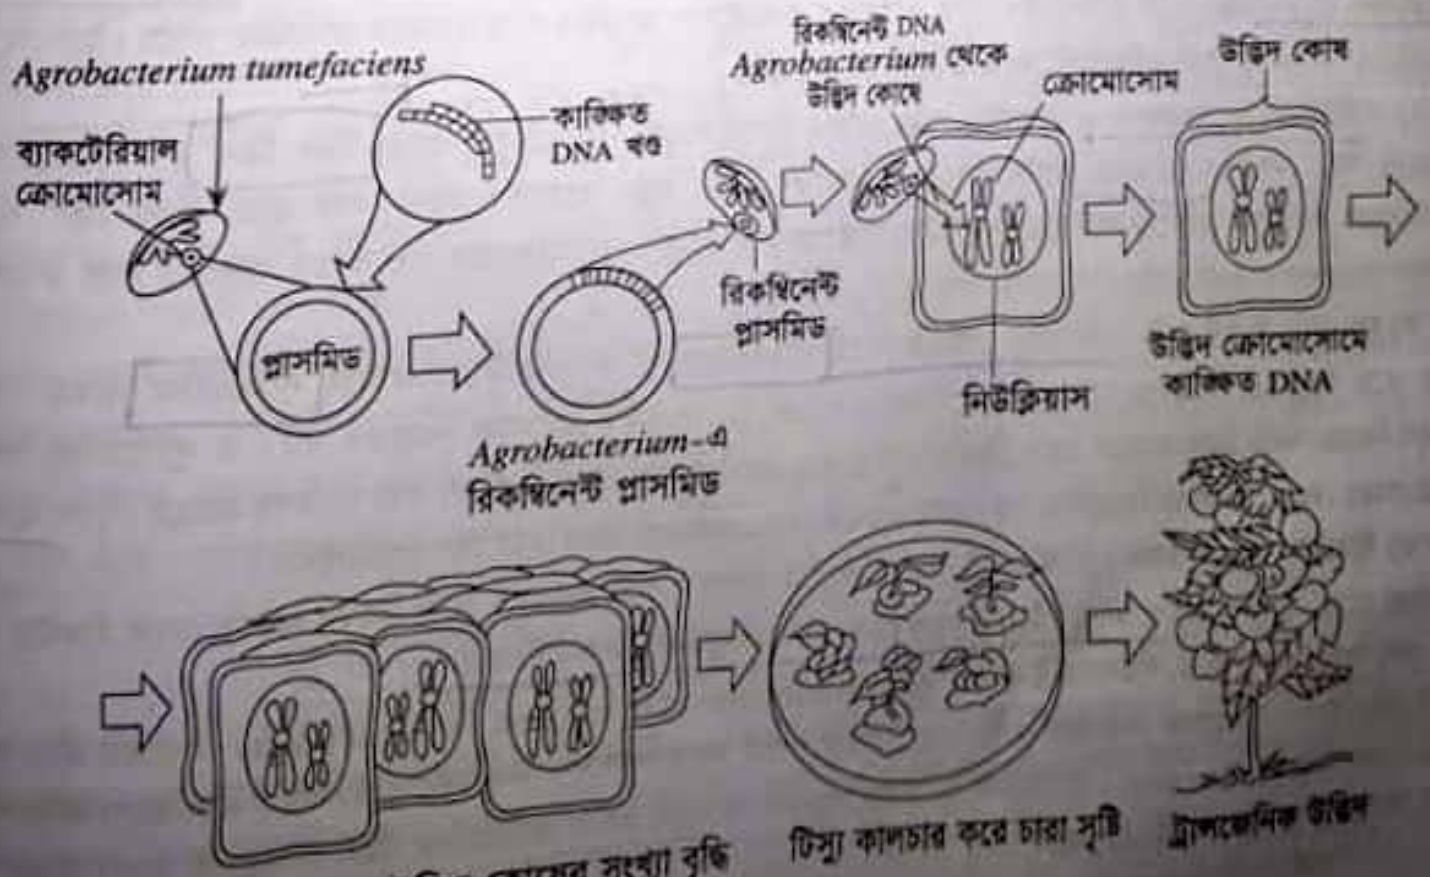 Agrobacterium tumefaciens
ব্যাকটেরিয়াল
ক্রোমোসোম
কাঙ্ক্ষিত
DNA খণ্ড
প্লাসমিড
Agrobacterium-এ
রিকম্বিনেন্ট প্লাসমিড
রিকম্বিনেন্ট
প্লাসমিড
রিকম্বিনেন্ট DNA
Agrobacterium থেকে
উদ্ভিদ কোষে
ক্রোমোসোম
নিউক্লিয়াস
উদ্ভিদ কোষ
উদ্ভিদ ক্রোমোসোমে
কাঙ্ক্ষিত DNA
কোষের সংখ্যা বৃদ্ধি
টিস্যু কালচার করে চারা সৃষ্টি
ট্রান্সজেনিক উদ্ভিদ